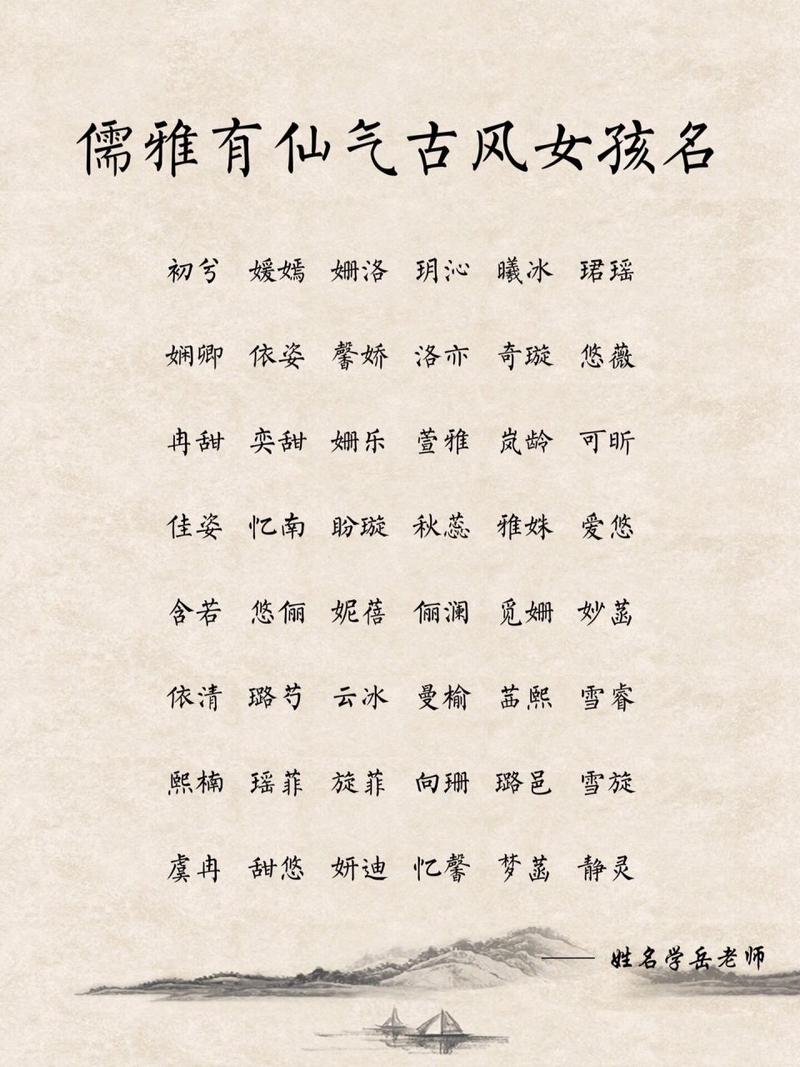 儒雅有仙气古风女孩名
初兮 媛嫣 姗洛 玥沁 曦冰 珺瑶
娴卿 依姿 馨娇 洛亦 奇璇 悠薇
冉甜 奕甜 姗乐 萱雅 岚龄 可昕
佳姿 忆南 盼璇 秋蕊 雅姝 爱悠
含若 悠俪 妮蓓 俪澜 觅姗 妙菡
依清 璐芍 云冰 曼榆 茜熙 雪睿
熙楠 瑶菲 旋菲 向珊 璐邑 雪旋
虞冉 甜悠 妍迪 忆馨 梦菡 静灵
—— 姓名学岳老师